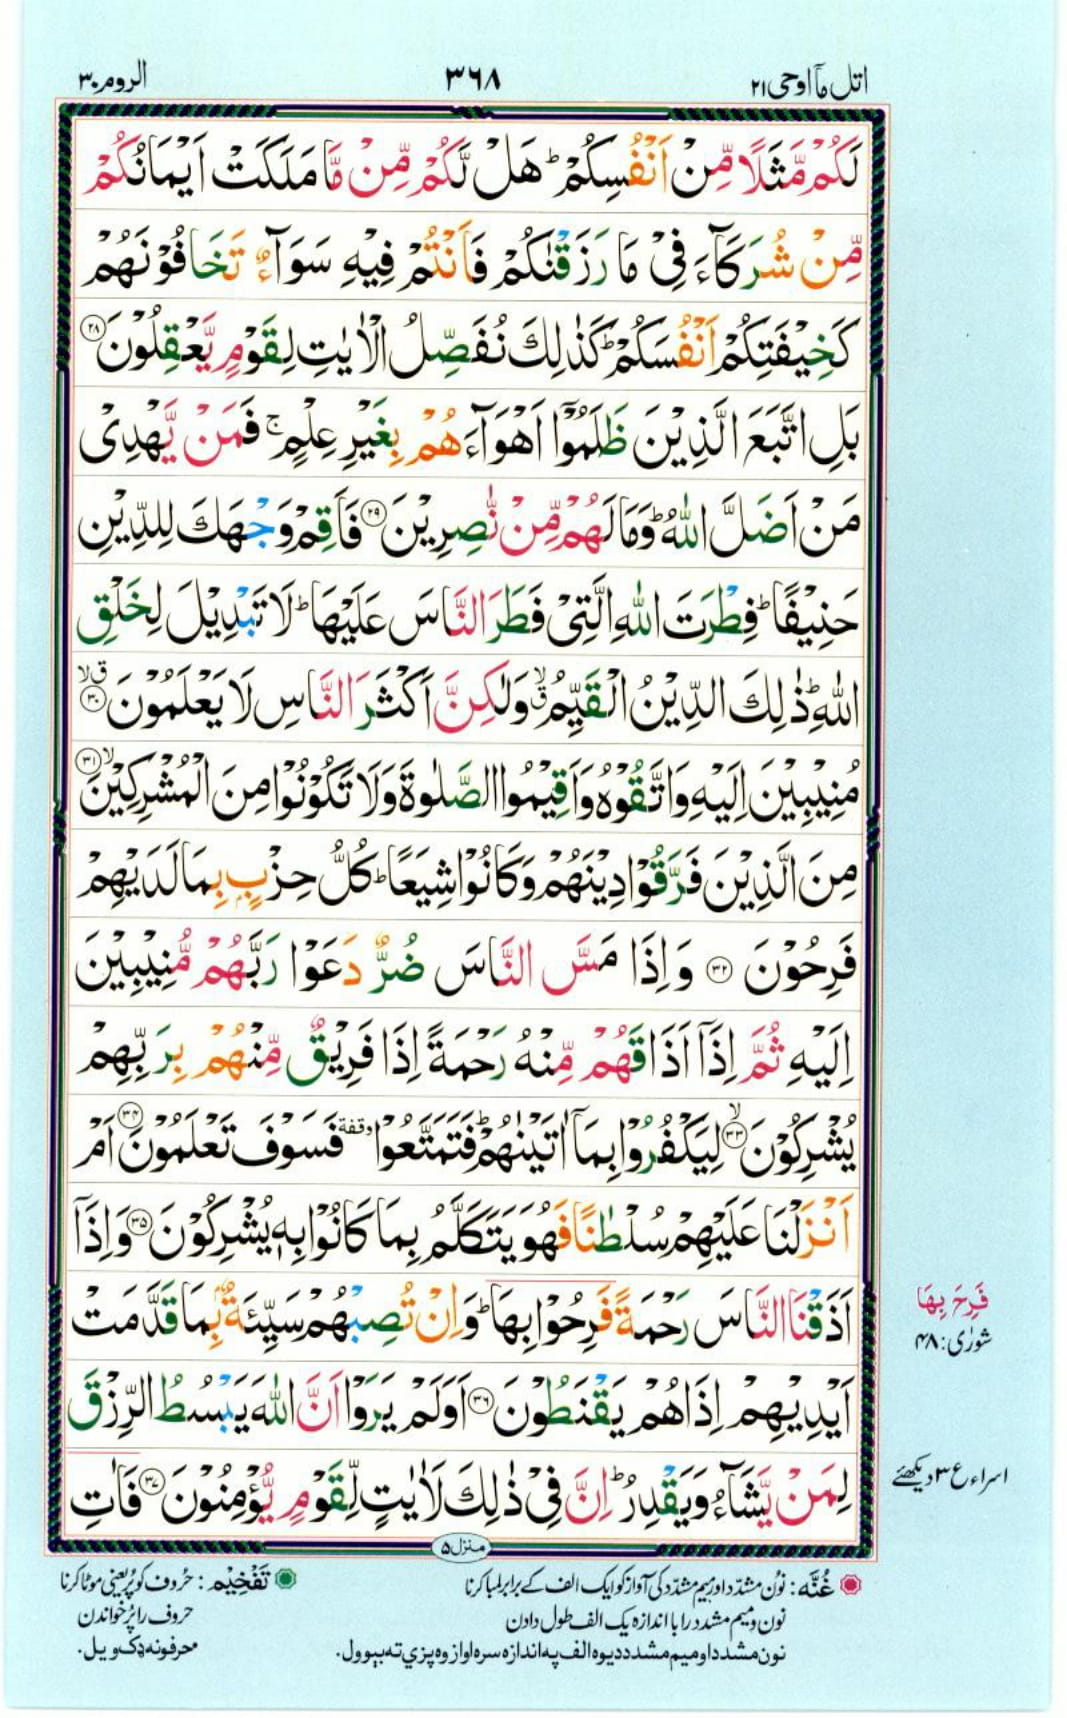 اتل مآ اوحی ۲۱
۳۶۸
الروم ۳۰
لَكُمْ مَّثَلًا مِّنْ اَنْفُسِكُمْ ؕ هَلْ لَّكُمْ مِّنْ مَّا مَلَكَتْ اَيْمَانُكُمْ
مِّنْ شُرَكَآءَ فِىْ مَا رَزَقْنٰكُمْ فَاَنْتُمْ فِيْهِ سَوَآءٌ تَخَافُوْنَهُمْ
كَخِيْفَتِكُمْ اَنْفُسَكُمْ ؕ كَذٰلِكَ نُفَصِّلُ الْاٰيٰتِ لِقَوْمٍ يَّعْقِلُوْنَ ۲۸
بَلِ اتَّبَعَ الَّذِيْنَ ظَلَمُوْۤا اَهْوَآءَهُمْ بِغَيْرِ عِلْمٍ ۚ فَمَنْ يَّهْدِىْ
مَنْ اَضَلَّ اللّٰهُ ؕ وَمَا لَهُمْ مِّنْ نّٰصِرِيْنَ ۲۹ فَاَقِمْ وَجْهَكَ لِلدِّيْنِ
حَنِيْفًا ؕ فِطْرَتَ اللّٰهِ الَّتِىْ فَطَرَ النَّاسَ عَلَيْهَا ؕ لَا تَبْدِيْلَ لِخَلْقِ
اللّٰهِ ؕ ذٰلِكَ الدِّيْنُ الْقَيِّمُ ۙ وَلٰكِنَّ اَكْثَرَ النَّاسِ لَا يَعْلَمُوْنَ ۳۰
مُنِيْبِيْنَ اِلَيْهِ وَاتَّقُوْهُ وَاَقِيْمُوا الصَّلٰوةَ وَلَا تَكُوْنُوْا مِنَ الْمُشْرِكِيْنَ ۙ ۳۱
مِنَ الَّذِيْنَ فَرَّقُوْا دِيْنَهُمْ وَكَانُوْا شِيَعًا ؕ كُلُّ حِزْبٍۢ بِمَا لَدَيْهِمْ
فَرِحُوْنَ ۳۲ وَاِذَا مَسَّ النَّاسَ ضُرٌّ دَعَوْا رَبَّهُمْ مُّنِيْبِيْنَ
اِلَيْهِ ثُمَّ اِذَاۤ اَذَاقَهُمْ مِّنْهُ رَحْمَةً اِذَا فَرِيْقٌ مِّنْهُمْ بِرَبِّهِمْ
يُشْرِكُوْنَ ۙ ۳۳ لِيَكْفُرُوْا بِمَاۤ اٰتَيْنٰهُمْ ؕ فَتَمَتَّعُوْا وقفة فَسَوْفَ تَعْلَمُوْنَ ۳۴ اَمْ
اَنْزَلْنَا عَلَيْهِمْ سُلْطٰنًا فَهُوَ يَتَكَلَّمُ بِمَا كَانُوْا بِهٖ يُشْرِكُوْنَ ۳۵ وَاِذَاۤ
اَذَقْنَا النَّاسَ رَحْمَةً فَرِحُوْا بِهَا ؕ وَاِنْ تُصِبْهُمْ سَيِّئَةٌۢ بِمَا قَدَّمَتْ
فَرِحَ بِهَا
شورٰی: ۴۸
اَيْدِيْهِمْ اِذَا هُمْ يَقْنَطُوْنَ ۳۶ اَوَلَمْ يَرَوْا اَنَّ اللّٰهَ يَبْسُطُ الرِّزْقَ
لِمَنْ يَّشَآءُ وَيَقْدِرُ ؕ اِنَّ فِىْ ذٰلِكَ لَاٰيٰتٍ لِّقَوْمٍ يُّؤْمِنُوْنَ ۳۷ فَاٰتِ
اسراء ع ۳ دیکھئے
منزل ۵
غُنَّه: نوُن مشدّد اور میم مشدّد کی آواز کو ایک الف کے برابر لمبا کرنا
نون و میم مشدد را با اندازہ یک الف طول دادن
نون مشدد او میم مشدد دیوہ الف په اندازه سره اواز وه پزي ته بېوول.
تَفْخِيْم: حرُوف کو پُر یعنی موٹا کرنا
حروف را پُر خواندن
محرفونه ډک ویل.